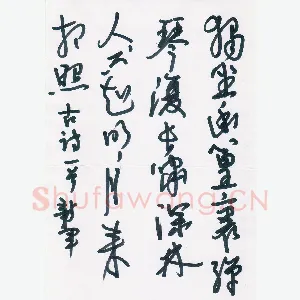 独坐幽篁里弹
琴复长啸深林
人不知明月来
相照古诗一首
Shufawang.CN